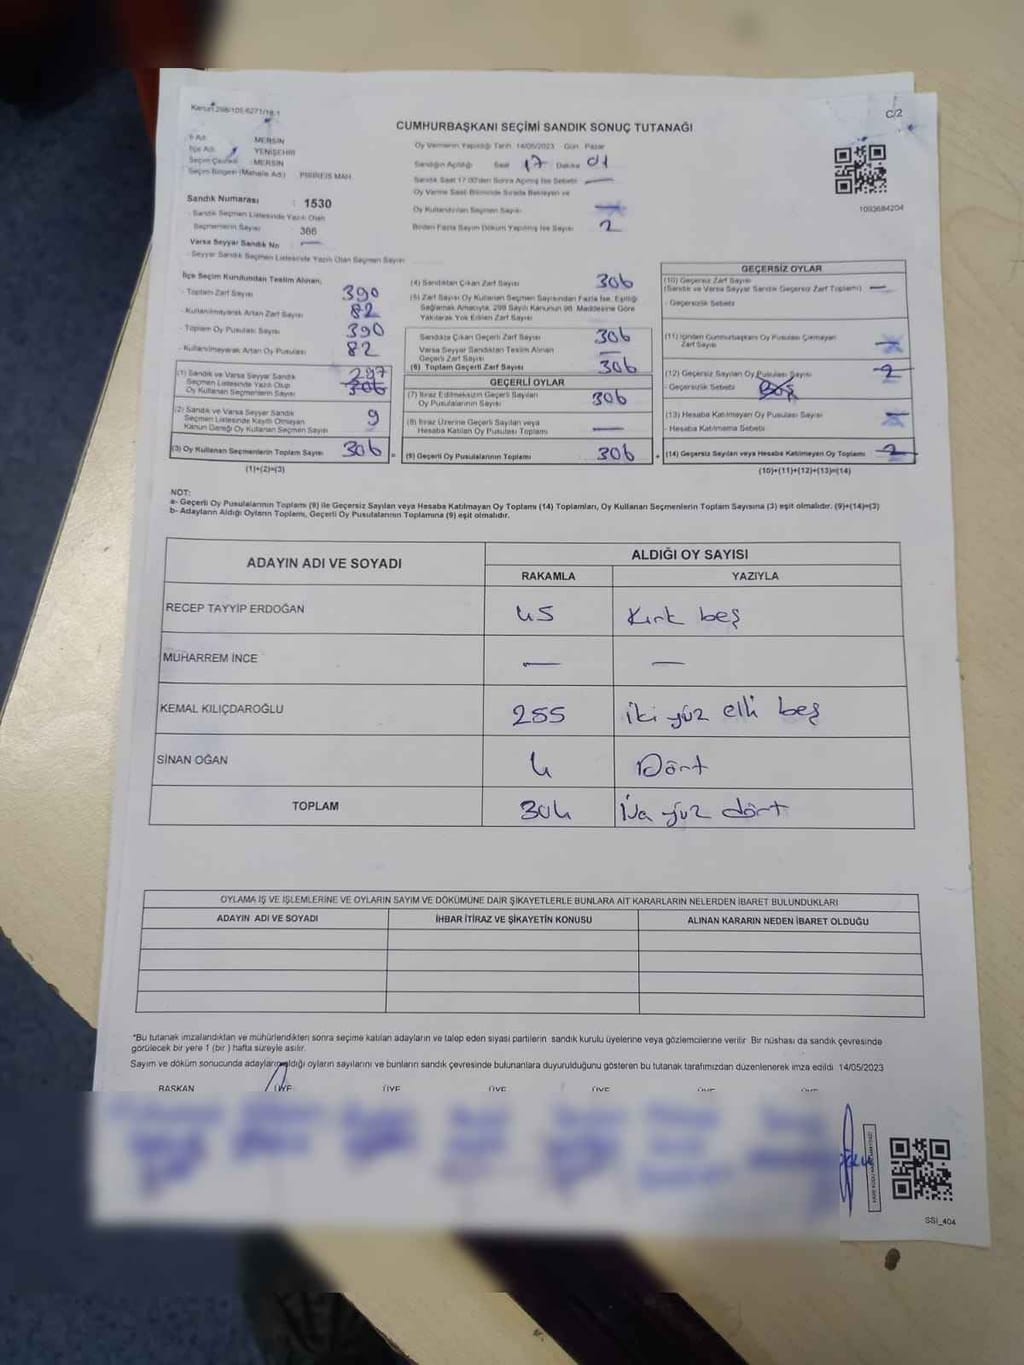 Kanun 298/105-6271/18-1
C/2
CUMHURBAŞKANI SEÇİMİ SANDIK SONUÇ TUTANAĞI
İl Adı MERSİN
İlçe Adı YENİŞEHİR
Seçim Çevresi MERSİN
Seçim Bölgesi (Mahalle Adı) PİRİREİS MAH.
Sandık Numarası : 1530
Sandık Seçmen Listesinde Yazılı Olan
Seçmenlerin Sayısı 366
Varsa Seyyar Sandık No —
- Seyyar Sandık Seçmen Listesinde Yazılı Olan Seçmen Sayısı
Oy Vermenin Yapıldığı Tarih 14/05/2023 - Gün Pazar
Sandığın Açıldığı Saat 17 Dakika 01
Sandık Saat 17:00'den Sonra Açılmış İse Sebebi —
Oy Verme Saati Bitiminde Sırada Bekleyen ve
Oy Kullandırılan Seçmen Sayısı
Birden Fazla Sayım Döküm Yapılmış İse Sayısı 2
1093684204
İlçe Seçim Kurulundan Teslim Alınan;
- Toplam Zarf Sayısı 390
- Kullanılmayarak Artan Zarf Sayısı 82
- Toplam Oy Pusulası Sayısı 390
- Kullanılmayarak Artan Oy Pusulası 82
(1) Sandık ve Varsa Seyyar Sandık
Seçmen Listesinde Yazılı Olup
Oy Kullanan Seçmenlerin Sayısı 297 306
(2) Sandık ve Varsa Seyyar Sandık
Seçmen Listesinde Kayıtlı Olmayan
Kanun Gereği Oy Kullanan Seçmen Sayısı 9
(3) Oy Kullanan Seçmenlerin Toplam Sayısı 306
(1)+(2)=(3)
(4) Sandıktan Çıkan Zarf Sayısı 306
(5) Zarf Sayısı Oy Kullanan Seçmen Sayısından Fazla İse, Eşitliği
Sağlamak Amacıyla, 298 Sayılı Kanunun 98. Maddesine Göre
Yakılarak Yok Edilen Zarf Sayısı
Sandıkta Çıkan Geçerli Zarf Sayısı 306
Varsa Seyyar Sandıktan Teslim Alınan
Geçerli Zarf Sayısı —
(6) Toplam Geçerli Zarf Sayısı 306
GEÇERLİ OYLAR
(7) İtiraz Edilmeksizin Geçerli Sayılan
Oy Pusulalarının Sayısı 306
(8) İtiraz Üzerine Geçerli Sayılan veya
Hesaba Katılan Oy Pusulası Toplamı —
= (9) Geçerli Oy Pusulalarının Toplamı 306
GEÇERSİZ OYLAR
(10) Geçersiz Zarf Sayısı
(Sandık ve Varsa Seyyar Sandık Geçersiz Zarf Toplamı) —
- Geçersizlik Sebebi
(11) İçinden Cumhurbaşkanı Oy Pusulası Çıkmayan
Zarf Sayısı
(12) Geçersiz Sayılan Oy Pusulası Sayısı 2
- Geçersizlik Sebebi
(13) Hesaba Katılmayan Oy Pusulası Sayısı
- Hesaba Katılmama Sebebi
+ (14) Geçersiz Sayılan veya Hesaba Katılmayan Oy Toplamı 2
(10)+(11)+(12)+(13)=(14)
NOT:
a- Geçerli Oy Pusulalarının Toplamı (9) ile Geçersiz Sayılan veya Hesaba Katılmayan Oy Toplamı (14) Toplamları, Oy Kullanan Seçmenlerin Toplam Sayısına (3) eşit olmalıdır. (9)+(14)=(3)
b- Adayların Aldığı Oyların Toplamı, Geçerli Oy Pusulalarının Toplamına (9) eşit olmalıdır.
ADAYIN ADI VE SOYADI
ALDIĞI OY SAYISI
RAKAMLA YAZIYLA
RECEP TAYYİP ERDOĞAN 45 Kırk beş
MUHARREM İNCE — —
KEMAL KILIÇDAROĞLU 255 iki yüz elli beş
SİNAN OĞAN 4 Dört
TOPLAM 304 yüz dört
OYLAMA İŞ VE İŞLEMLERİNE VE OYLARIN SAYIM VE DÖKÜMÜNE DAİR ŞİKAYETLERLE BUNLARA AİT KARARLARIN NELERDEN İBARET BULUNDUKLARI
ADAYIN ADI VE SOYADI İHBAR İTİRAZ VE ŞİKAYETİN KONUSU ALINAN KARARIN NEDEN İBARET OLDUĞU
*Bu tutanak imzalandıktan ve mühürlendikten sonra seçime katılan adayların ve talep eden siyasi partilerin sandık kurulu üyelerine veya gözlemcilerine verilir Bir nüshası da sandık çevresinde
görülecek bir yere 1 (bir ) hafta süreyle asılır.
Sayım ve döküm sonucunda adayların aldığı oyların sayılarını ve bunların sandık çevresinde bulunanlara duyurulduğunu gösteren bu tutanak tarafımızdan düzenlenerek imza edildi 14/05/2023
BAŞKAN ÜYE ÜYE ÜYE ÜYE ÜYE ÜYE
SSI_404